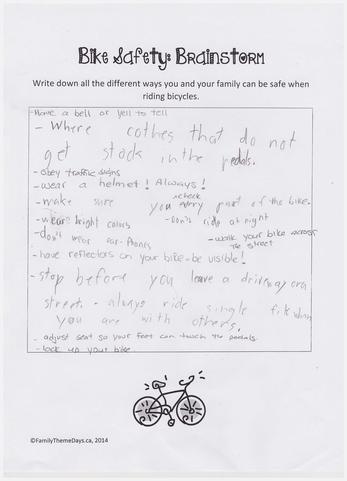 Bike Safety: Brainstorm
Write down all the different ways you and your family can be safe when
riding bicycles.
-Have a bell or yell to tell
- Where cothes that do not
get stock in the pedals.
- obey traffic signs
- wear a helmet! Always!
- make sure you check every part of the bike.
- wear bright colors - Don't ride at night
- don't wear ear-phones - walk your bike across
the street
- have reflectors on your bike - be visible!
- stop before you leave a driveway or a
street. - always ride single fik when
you are with others.
- adjust seat so your feet can touch the pedals
- lock up your bike
©FamilyThemeDays.ca, 2014